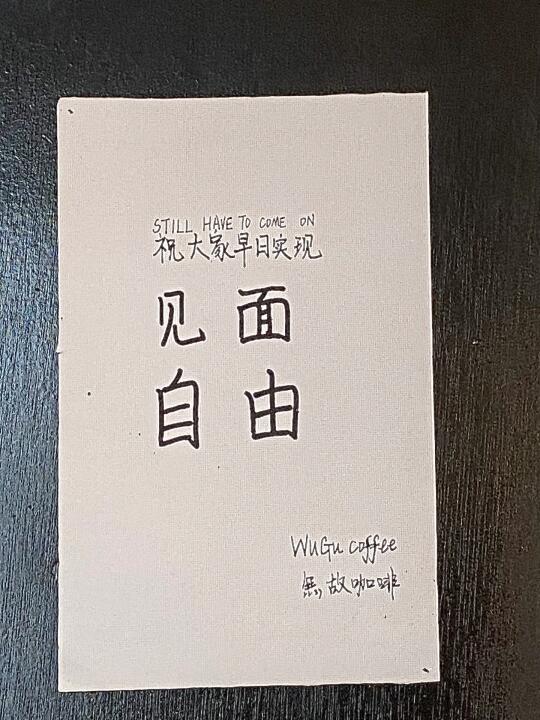 STILL HAVE TO COME ON
祝大家早日实现
见面
自由
WuGu coffee
無故咖啡